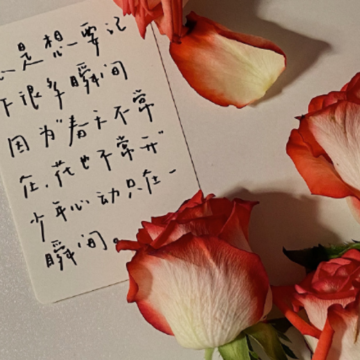 心是想一要记
下很多瞬间
因为“春天不常
在，花也不常开”
少年心动只在一
瞬间。